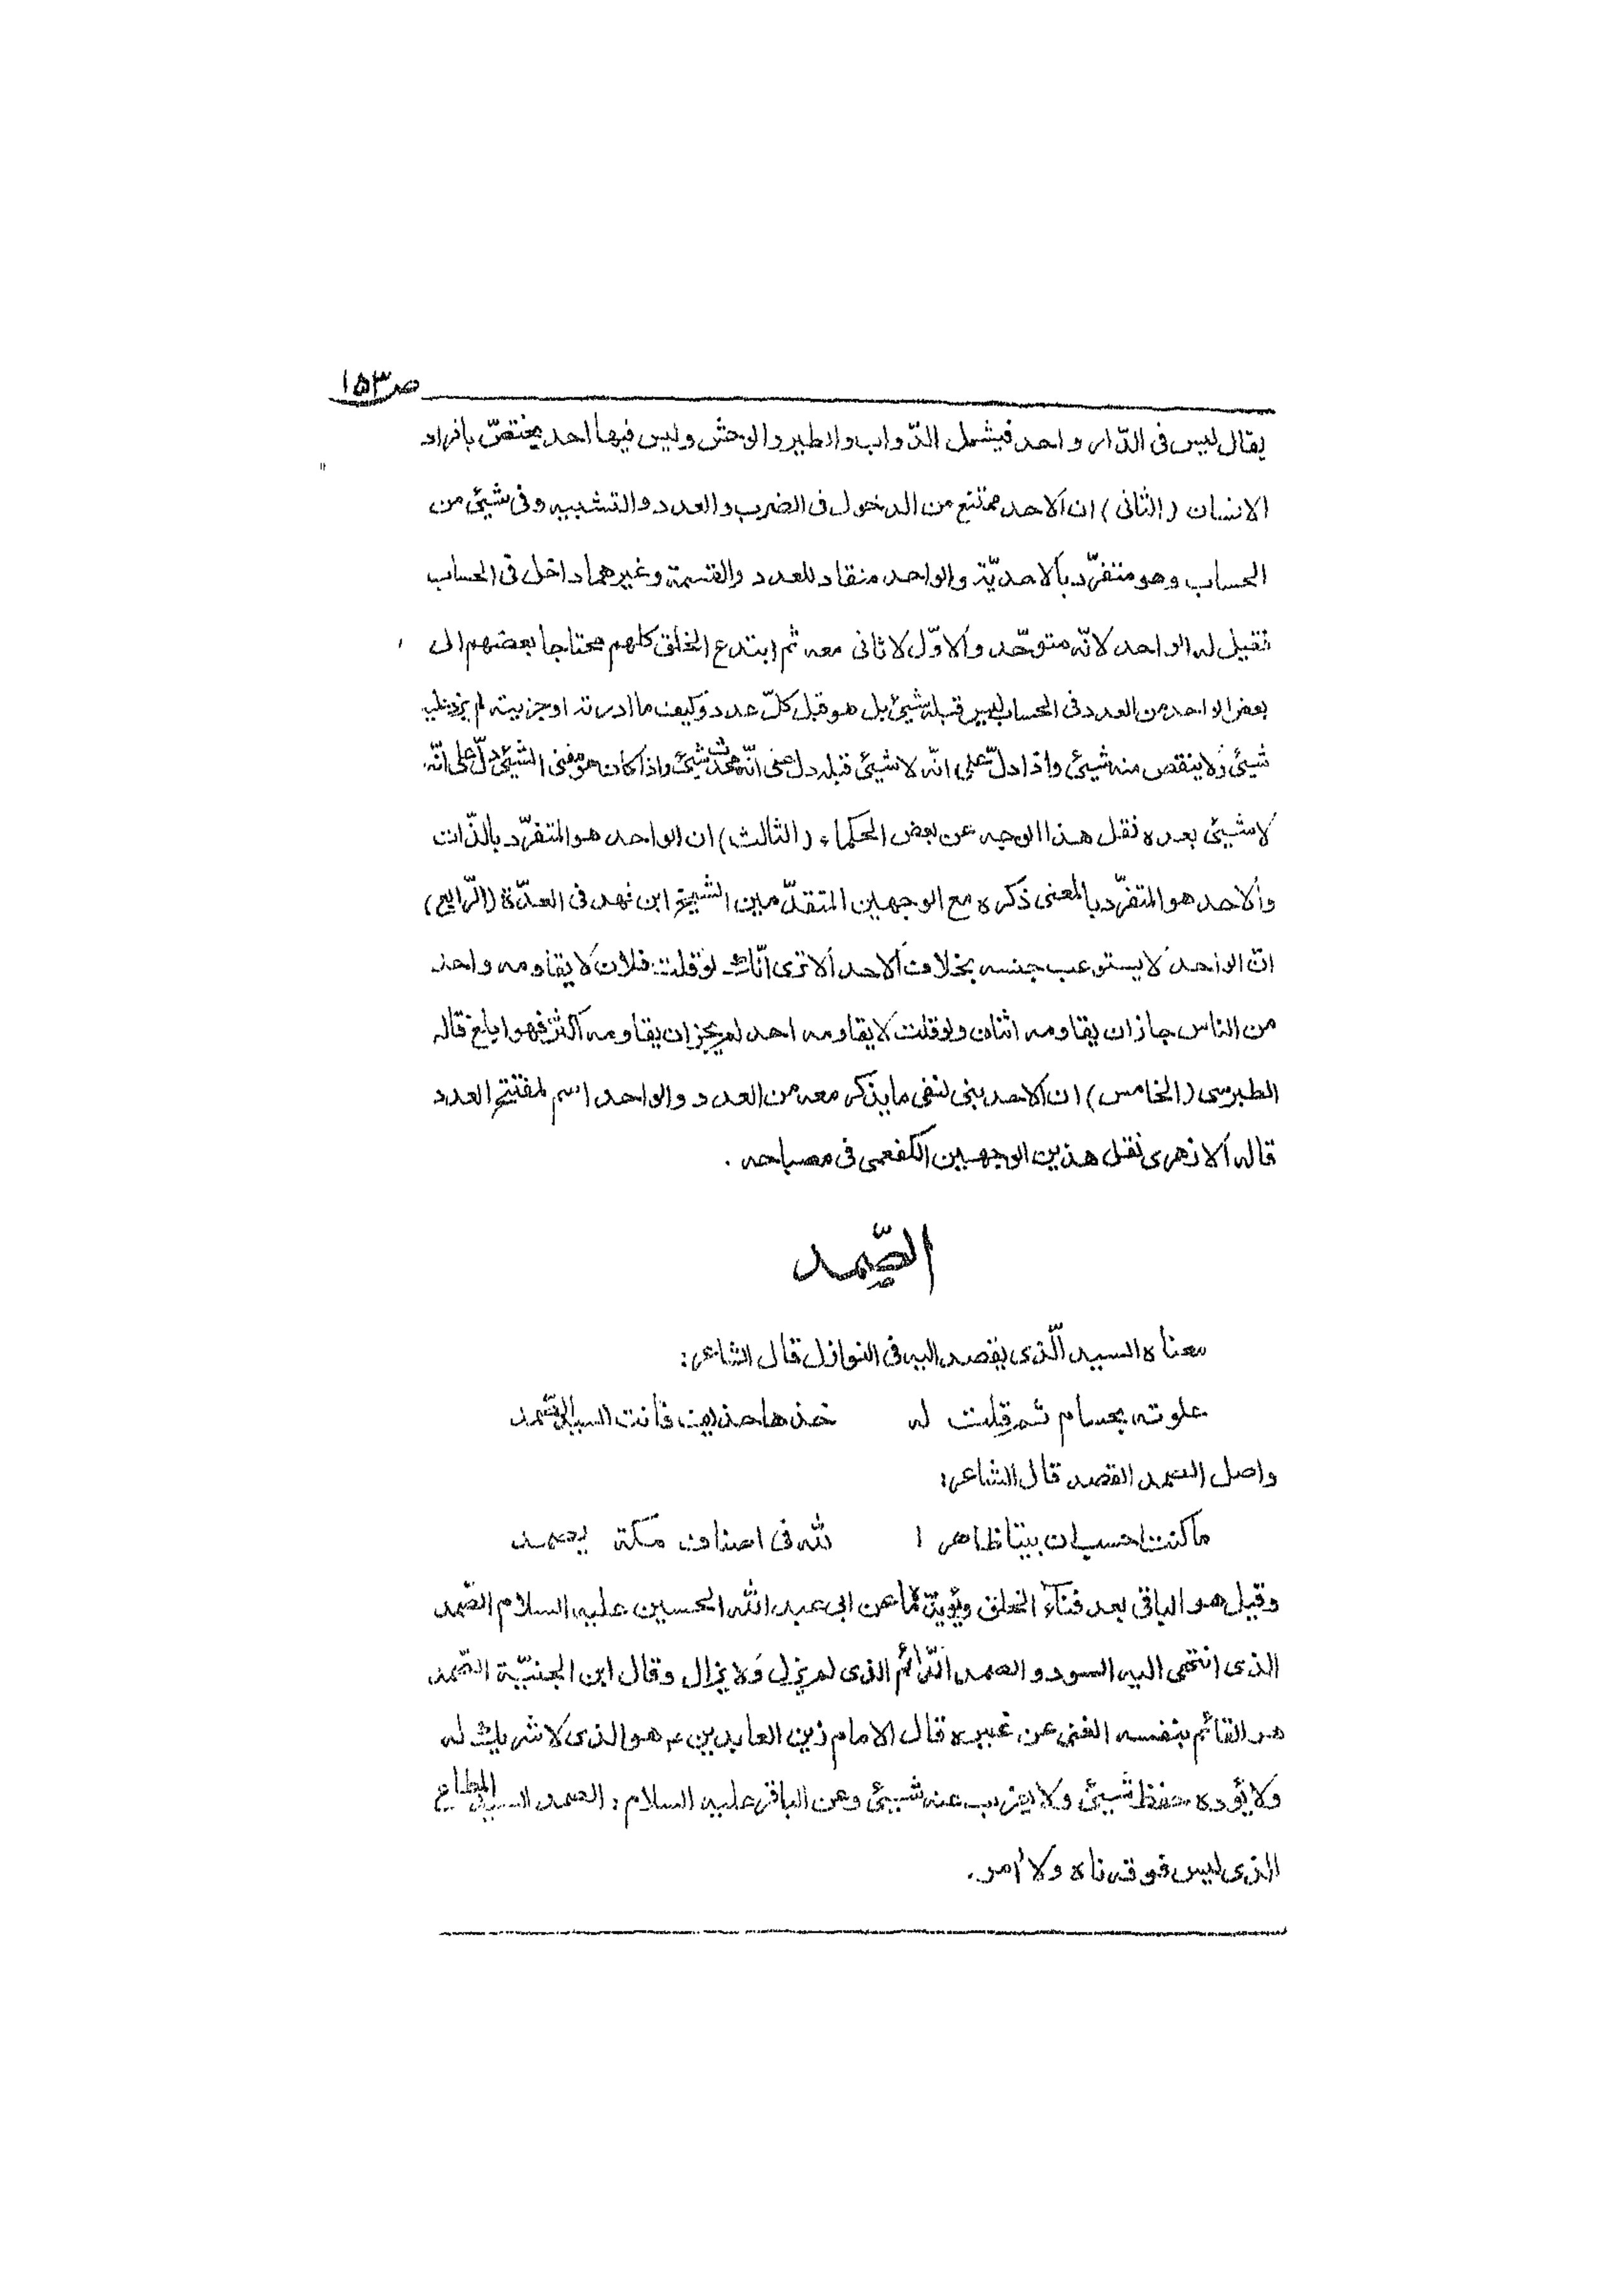 ص ١٥٣
يقال ليس فى الدّار واحد فيشمل الدّواب والطير والوحش وليس فيها احد يختصّ بافراد
الانسان (الثانى) ان الاحد ممتنع من الدخول فى الضرب والعدد والتشبيه وفى شيئ من
الحساب وهو متفرّد بالاحديّة والواحد منقاد للعدد والقسمة وغيرهما داخل فى الحساب
فقيل له الواحد لانّه متوحّد والاوّل لا ثانى معه ثم ابتدع الخلق كلهم محتاجا بعضهم الى
بعض الواحد من العدد فى الحساب ليس قبله شيئ بل هو قبل كلّ عدد وكيف ما ادرته او جزيته لم يزد عليه
شيئ ولا ينقص منه شيئ واذا دلّ على انّه لا شيئ قبله دل على انّه محدث شيئ واذا كان هو مفنى الشيئ دلّ على انّه
لا شيئ بعده نقل هذا الوجه عن بعض الحكماء (الثالث) ان الواحد هو المتفرّد بالذّات
والاحد هو المتفرّد بالمعنى ذكره مع الوجهين المتقدّمين الشيخ ابن فهد فى العدّة (الرّابع)
انّ الواحد لا يستوعب جنسه بخلاف الاحد الا ترى انّك لو قلت فلان لا يقاومه واحد
من الناس جاز ان يقاومه اثنان ولو قلت لا يقاومه احد لم يجز ان يقاومه اكثر فهو ابلغ قاله
الطبرسى (الخامس) ان الاحد بنى لنفى ما يذكر معه من العدد والواحد اسم لمفتتح العدد
قاله الازهرى نقل هذين الوجهين الكفعمى فى مصباحه .
الصّمد
معناه السيد الّذى يقصد اليه فى النوازل قال الشاعر:
علوته بحسام ثم قلت له خذها حذيف فانت السيد الصّمد
واصل الصمد القصد قال الشاعر:
ما كنت احسب ان بيتا ظاهرا لله فى اصناف مكة يصمد
وقيل هو الباقى بعد فناء الخلق ويؤيّده ما عن ابى عبد الله الحسين عليه السلام الصّمد
الذى انتهى اليه السودد والصمد الدّائم الذى لم يزل ولا يزال وقال ابن الحنفيّة الصّمد
هو القائم بنفسه الغنى عن غيره قال الامام زين العابدين ع هو الذى لا شريك له
ولا يؤده حفظ شيئ ولا يعزب عنه شيئ وعن الباقر عليه السلام: الصمد السيد المطاع
الذى ليس فوقه ناه ولا أمر.